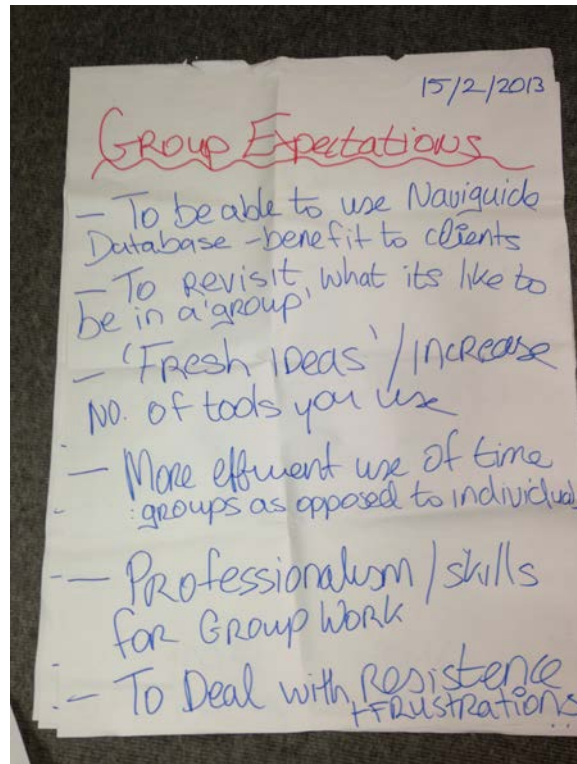 15/2/2013
GROUP Expectations
- To be able to use Naviguide
Database - benefit to clients
- To REVISIT what its like to
be in a 'group'
- 'FRESH IDEAS' / INCREASE
NO. of tools you use
- More efficient use of time
: groups as opposed to individual
- PROfessionalism / skills
for GROUP WORK
- To Deal with Resistence
+ FRUSTRATIONS...